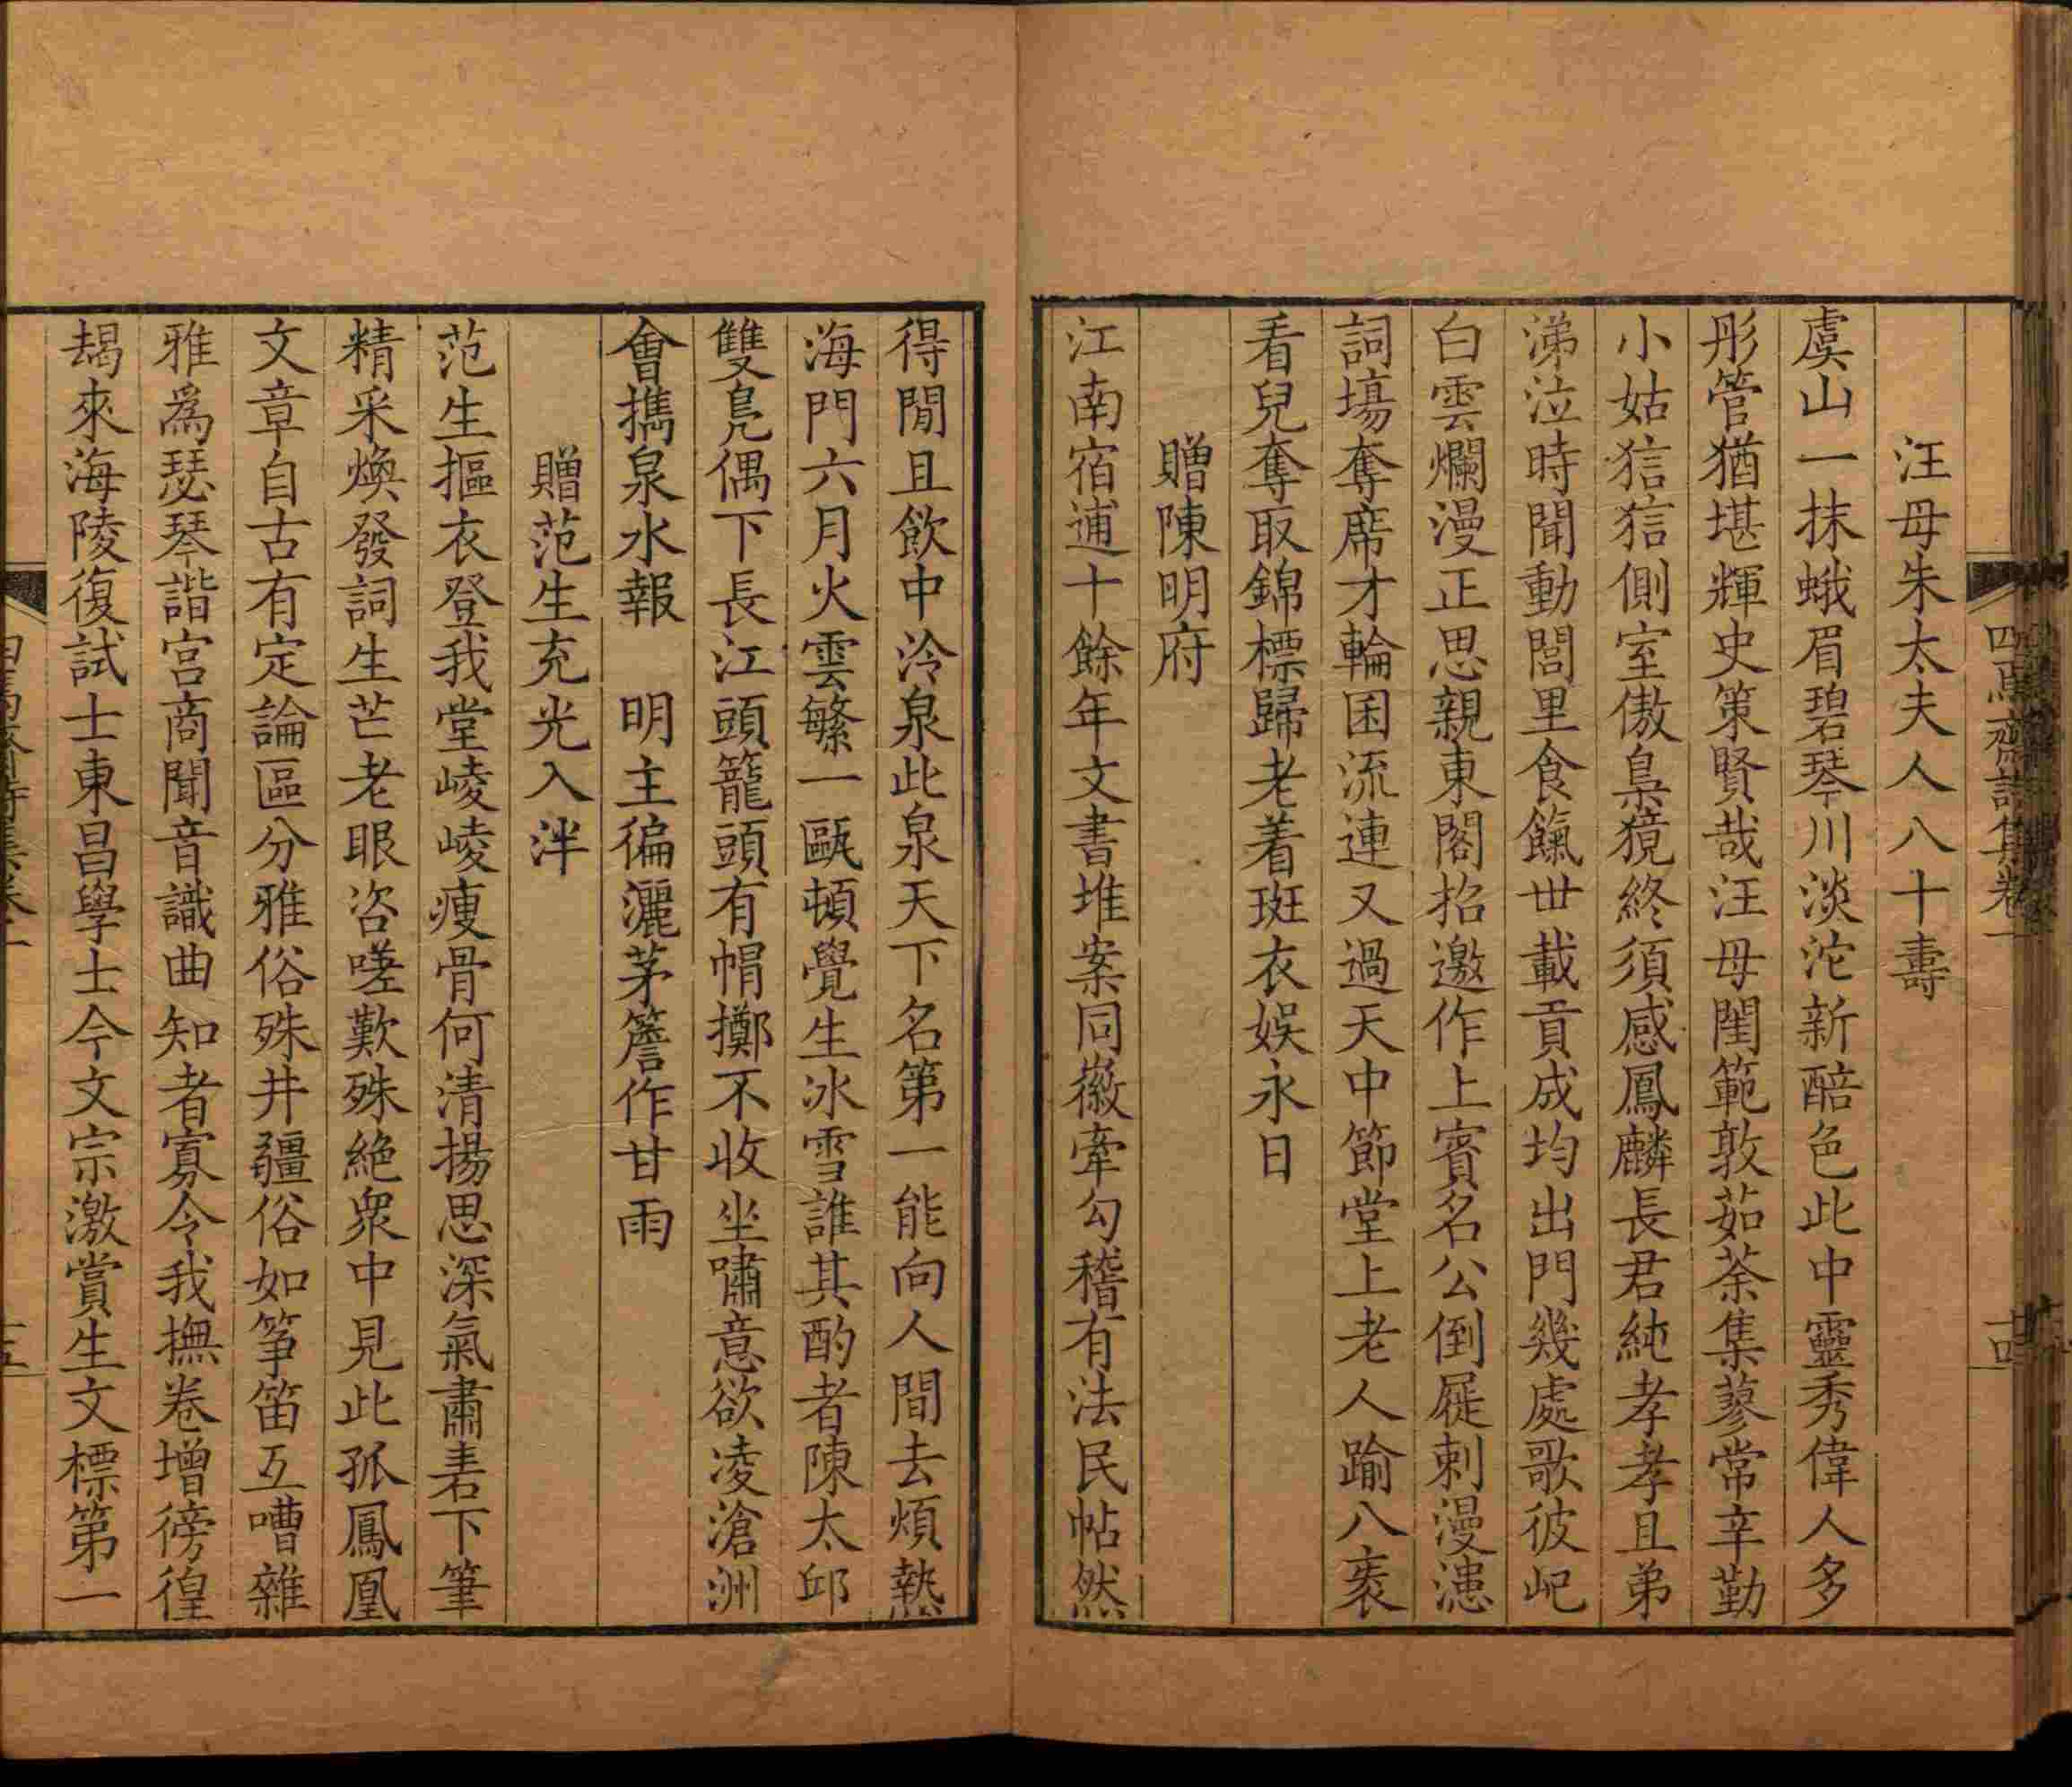 四焉齋詩集卷一
十四
汪母朱太夫人八十壽
虞山一抹蛾眉碧琴川淡沱新醅色此中靈秀偉人多
彤管猶堪輝史策賢哉汪母閨範敦茹荼集蓼常辛勤
小姑狺狺側室傲梟獍終須感鳳麟長君純孝孝且弟
涕泣時聞動閭里食餼丗載貢成均出門幾處歌彼屺
白雲爛漫正思親東閣招邀作上賓名公倒屣刺漫漶
詞塲奪席才輪囷流連又過天中節堂上老人踰八袠
看兒奪取錦標歸老着斑衣娱永日
贈陳明府
江南宿逋十餘年文書堆案同徽牽勾稽有法民帖然
得閒且飲中泠泉此泉天下名第一能向人間去煩熱
海門六月火雲繁一甌頓覺生冰雪誰其酌者陳太邱
雙鳧偶下長江頭籠頭有帽擲不收坐嘯意欲凌滄洲
會攜泉水報　明主徧灑茅簷作甘雨
贈范生充光入泮
范生摳衣登我堂崚崚瘦骨何清揚思深氣肅砉下筆
精采煥發詞生芒老眼咨嗟歎殊絶衆中見此孤鳳凰
文章自古有定論區分雅俗殊井疆俗如筝笛互嘈雜
雅爲瑟琴諧宫商聞音識曲知者寡令我撫卷增徬徨
朅來海陵復試士東昌學士今文宗激賞生文標第一
四焉齋詩集卷一
十五